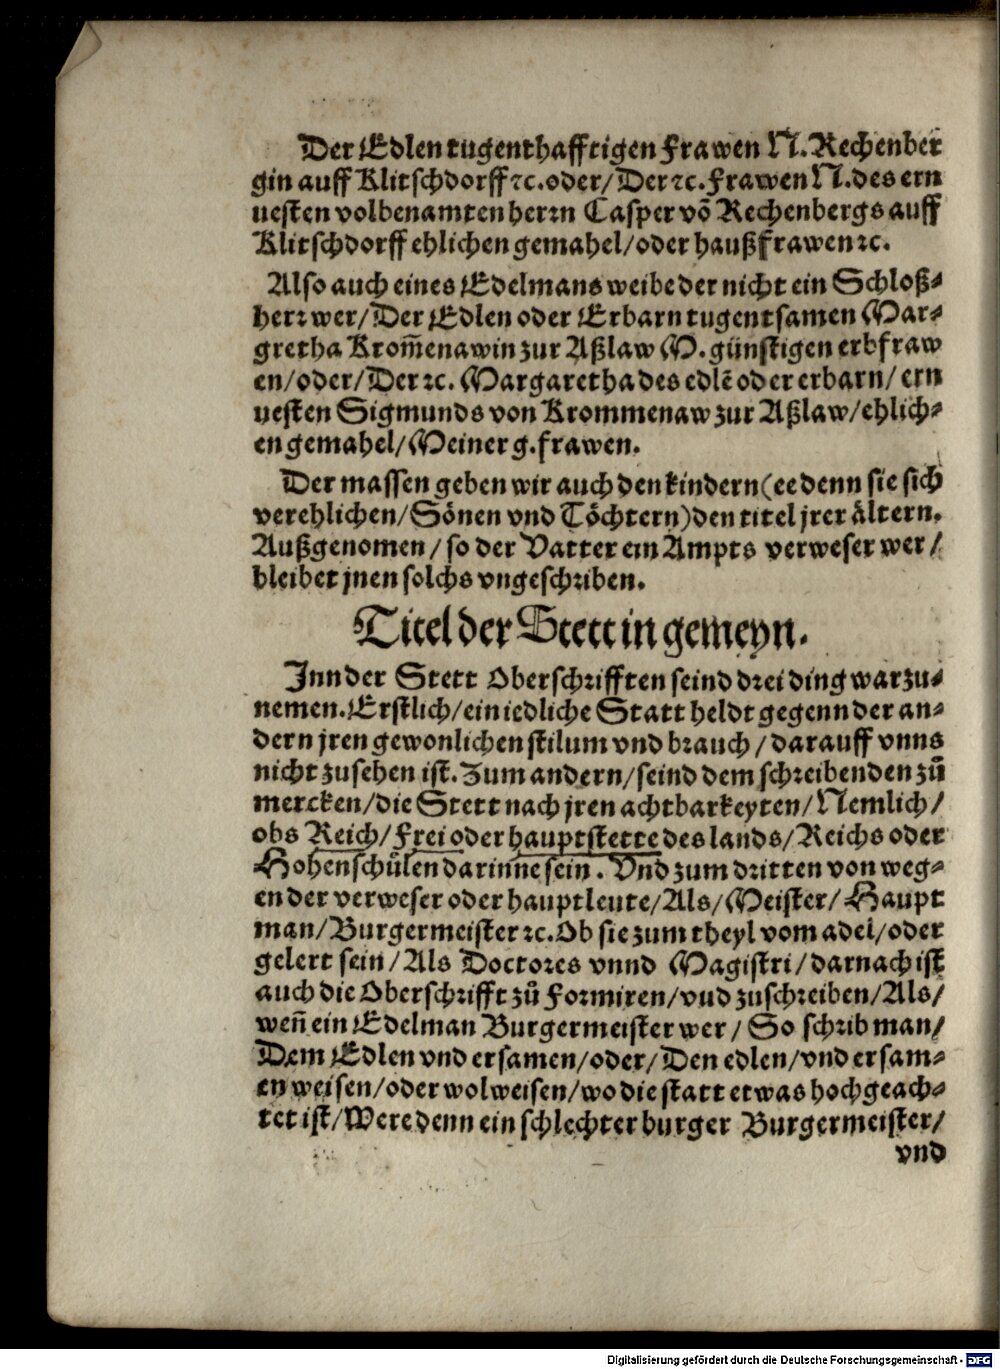 Der Edlen tugenthafftigen Frawen N. Rechenber
gin auff Klitschdorff ꝛc. oder/ Der ꝛc. Frawen N. des ern
uesten volbenamten herrn Casper võ Rechenbergs auff
Klitschdorff ehlichen gemahel/ oder haußfrawen ꝛc.
Also auch eines Edelmans weibe der nicht ein Schloß⸗
herr wer/ Der Edlen oder Erbarn tugentsamen Mar⸗
gretha Krom̃enawin zur Aßlaw M. günstigen erbfraw
en/ oder/ Der ꝛc. Margaretha des edlẽ oder erbarn/ ern
uesten Sigmunds von Krommenaw zur Aßlaw/ ehlich⸗
en gemahel/ Meiner g. frawen.
Der massen geben wir auch den kindern (ee denn sie sich
verehlichen/ Sönen vnd Töchtern) den titel jrer ältern.
Außgenomen/ so der Vatter ein Ampts verweser wer/
bleibet jnen solchs vngeschriben.
Titel der Stett in gemeyn.
Inn der Stett Oberschrifften seind drei ding warzu⸗
nemen. Erstlich/ ein iedliche Statt heldt gegenn der an⸗
dern jren gewonlichen stilum vnd brauch/ darauff vnns
nicht zusehen ist. Zum andern/ seind dem schreibenden zů
mercken/ die Stett nach jren achtbarkeyten/ Nemlich/
obs Reich/ Frei oder hauptstette des lands/ Reichs oder
Hohenschůlen darinne sein. Vnd zum dritten von weg⸗
en der verweser oder hauptleute/ Als/ Meister/ Haupt
man/ Burgermeister ꝛc. Ob sie zum theyl vom adel/ oder
gelert sein/ Als Doctores vnnd Magistri/ darnach ist
auch die Oberschrifft zů Formiren/ vnd zuschreiben/ Als/
weñ ein Edelman Burgermeister wer/ So schrib man/
Dem Edlen vnd ersamen/ oder/ Den edlen/ vnd ersam⸗
en weisen/ oder wolweisen/ wo die statt etwas hochgeach⸗
tet ist/ Were denn ein schlechter burger Burgermeister/
vnd
Digitalisierung gefördert durch die Deutsche Forschungsgemeinschaft - DFG